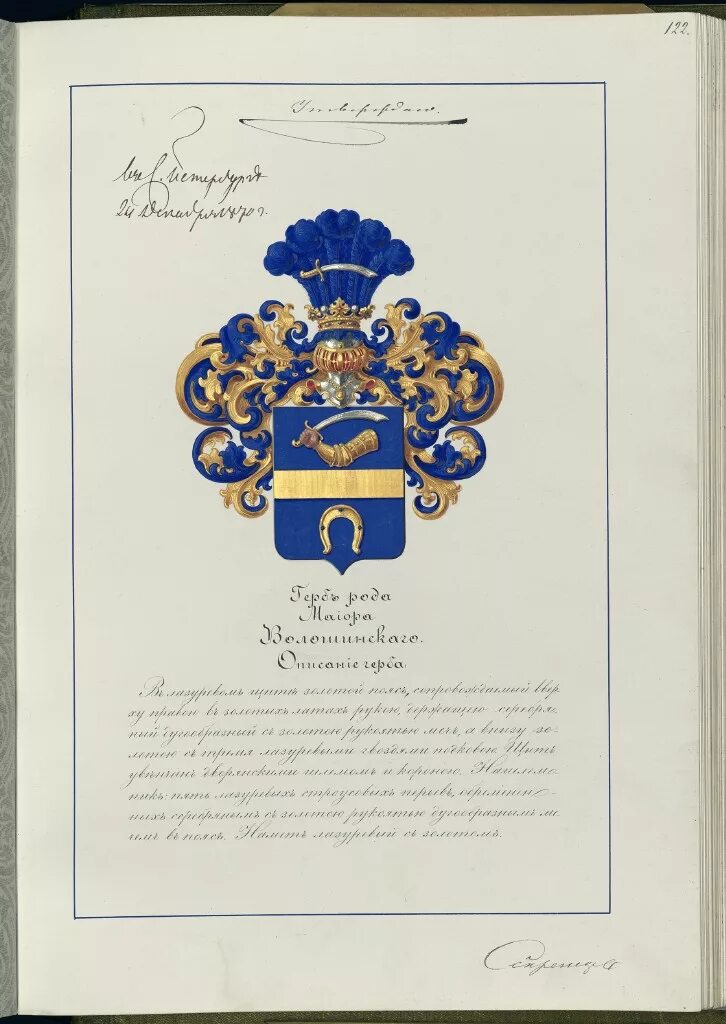 122.
Утверждаю.
въ С. Петербургѣ
24 Декабря 1870 г.
Гербъ рода
Маіора
Волошинскаго.
Описаніе герба.
Въ лазуревомъ щитѣ золотой поясъ, сопровождаемый ввер-
ху правою въ золотыхъ латахъ рукою, держащею серебря-
ный дугообразный съ золотою рукоятью мечъ, а внизу зо-
лотою съ тремя лазуревыми гвоздями подковою. Щитъ
увѣнчанъ дворянскими шлемомъ и короною. Нашлем-
никъ: пять лазуревыхъ строусовыхъ перьевъ, обременен-
ныхъ серебрянымъ съ золотою рукоятью дугообразнымъ ме-
чемъ въ поясъ. Наметъ лазуревый съ золотомъ.